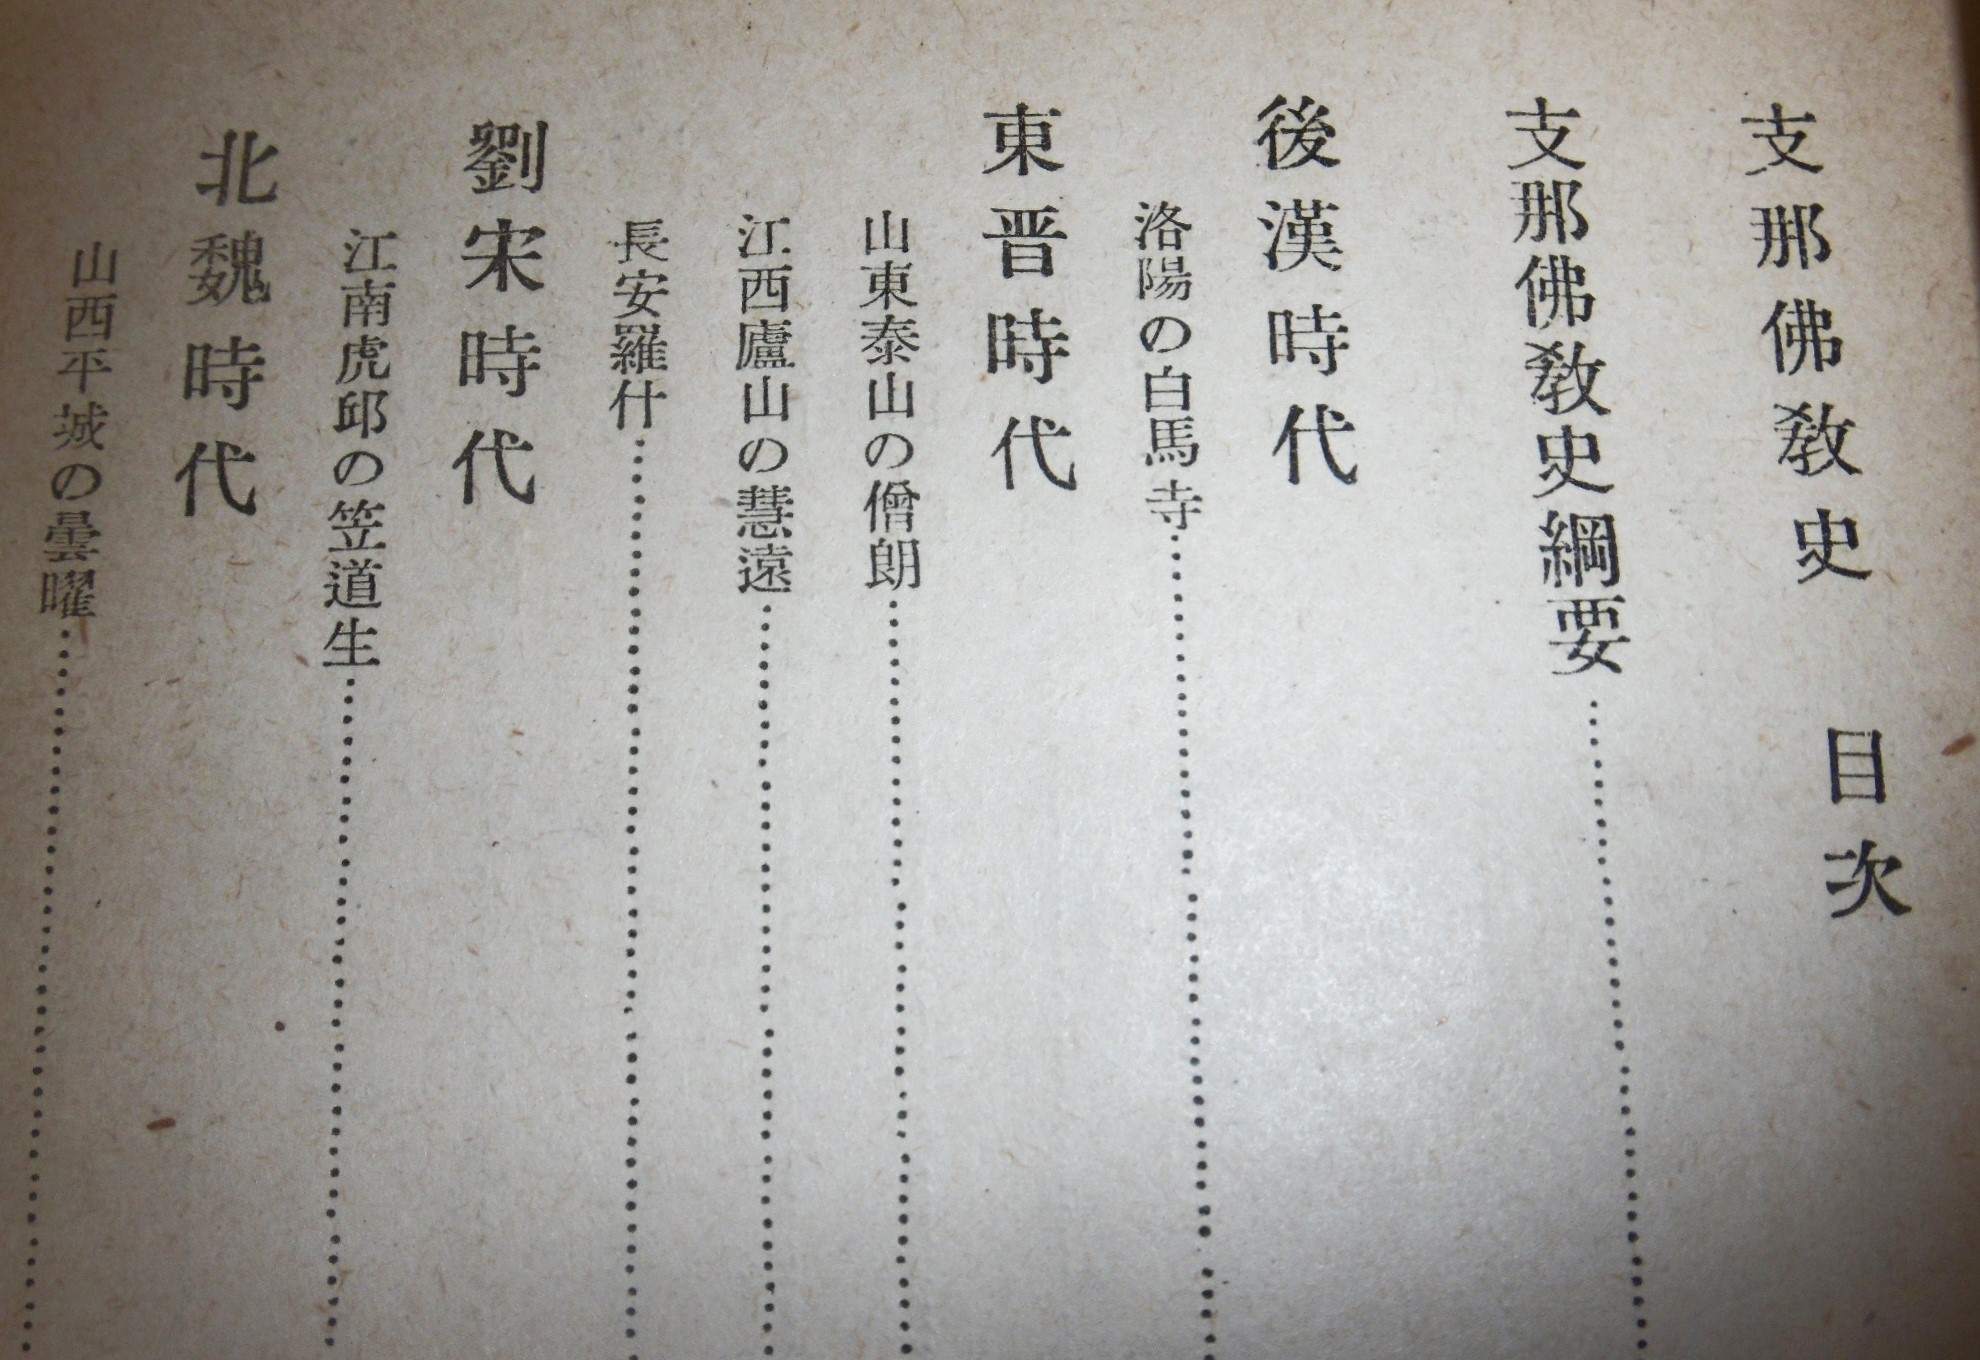 支那佛敎史　目次
支那佛敎史綱要
後漢時代
洛陽の白馬寺
東晋時代
山東泰山の僧朗
江西廬山の慧遠
長安羅什
劉宋時代
江南虎邱の笠道生
北魏時代
山西平城の曇曜